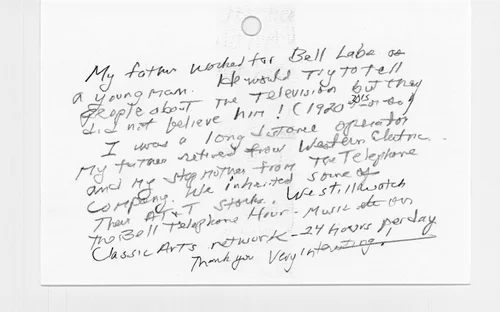 My father worked for Bell Labs as
a young man. He would Try to tell
people about The Television but they
did not believe him! (1920's
I was a long distance operator
My father retired from Western Electric
and my step mother from The Telephone
Company. We inherited some of
Their AT&T stocks. We still watch
the Bell Telephone Hour - Music on
Classic Arts network - 24 hours per day
Thank you Very Interesting.